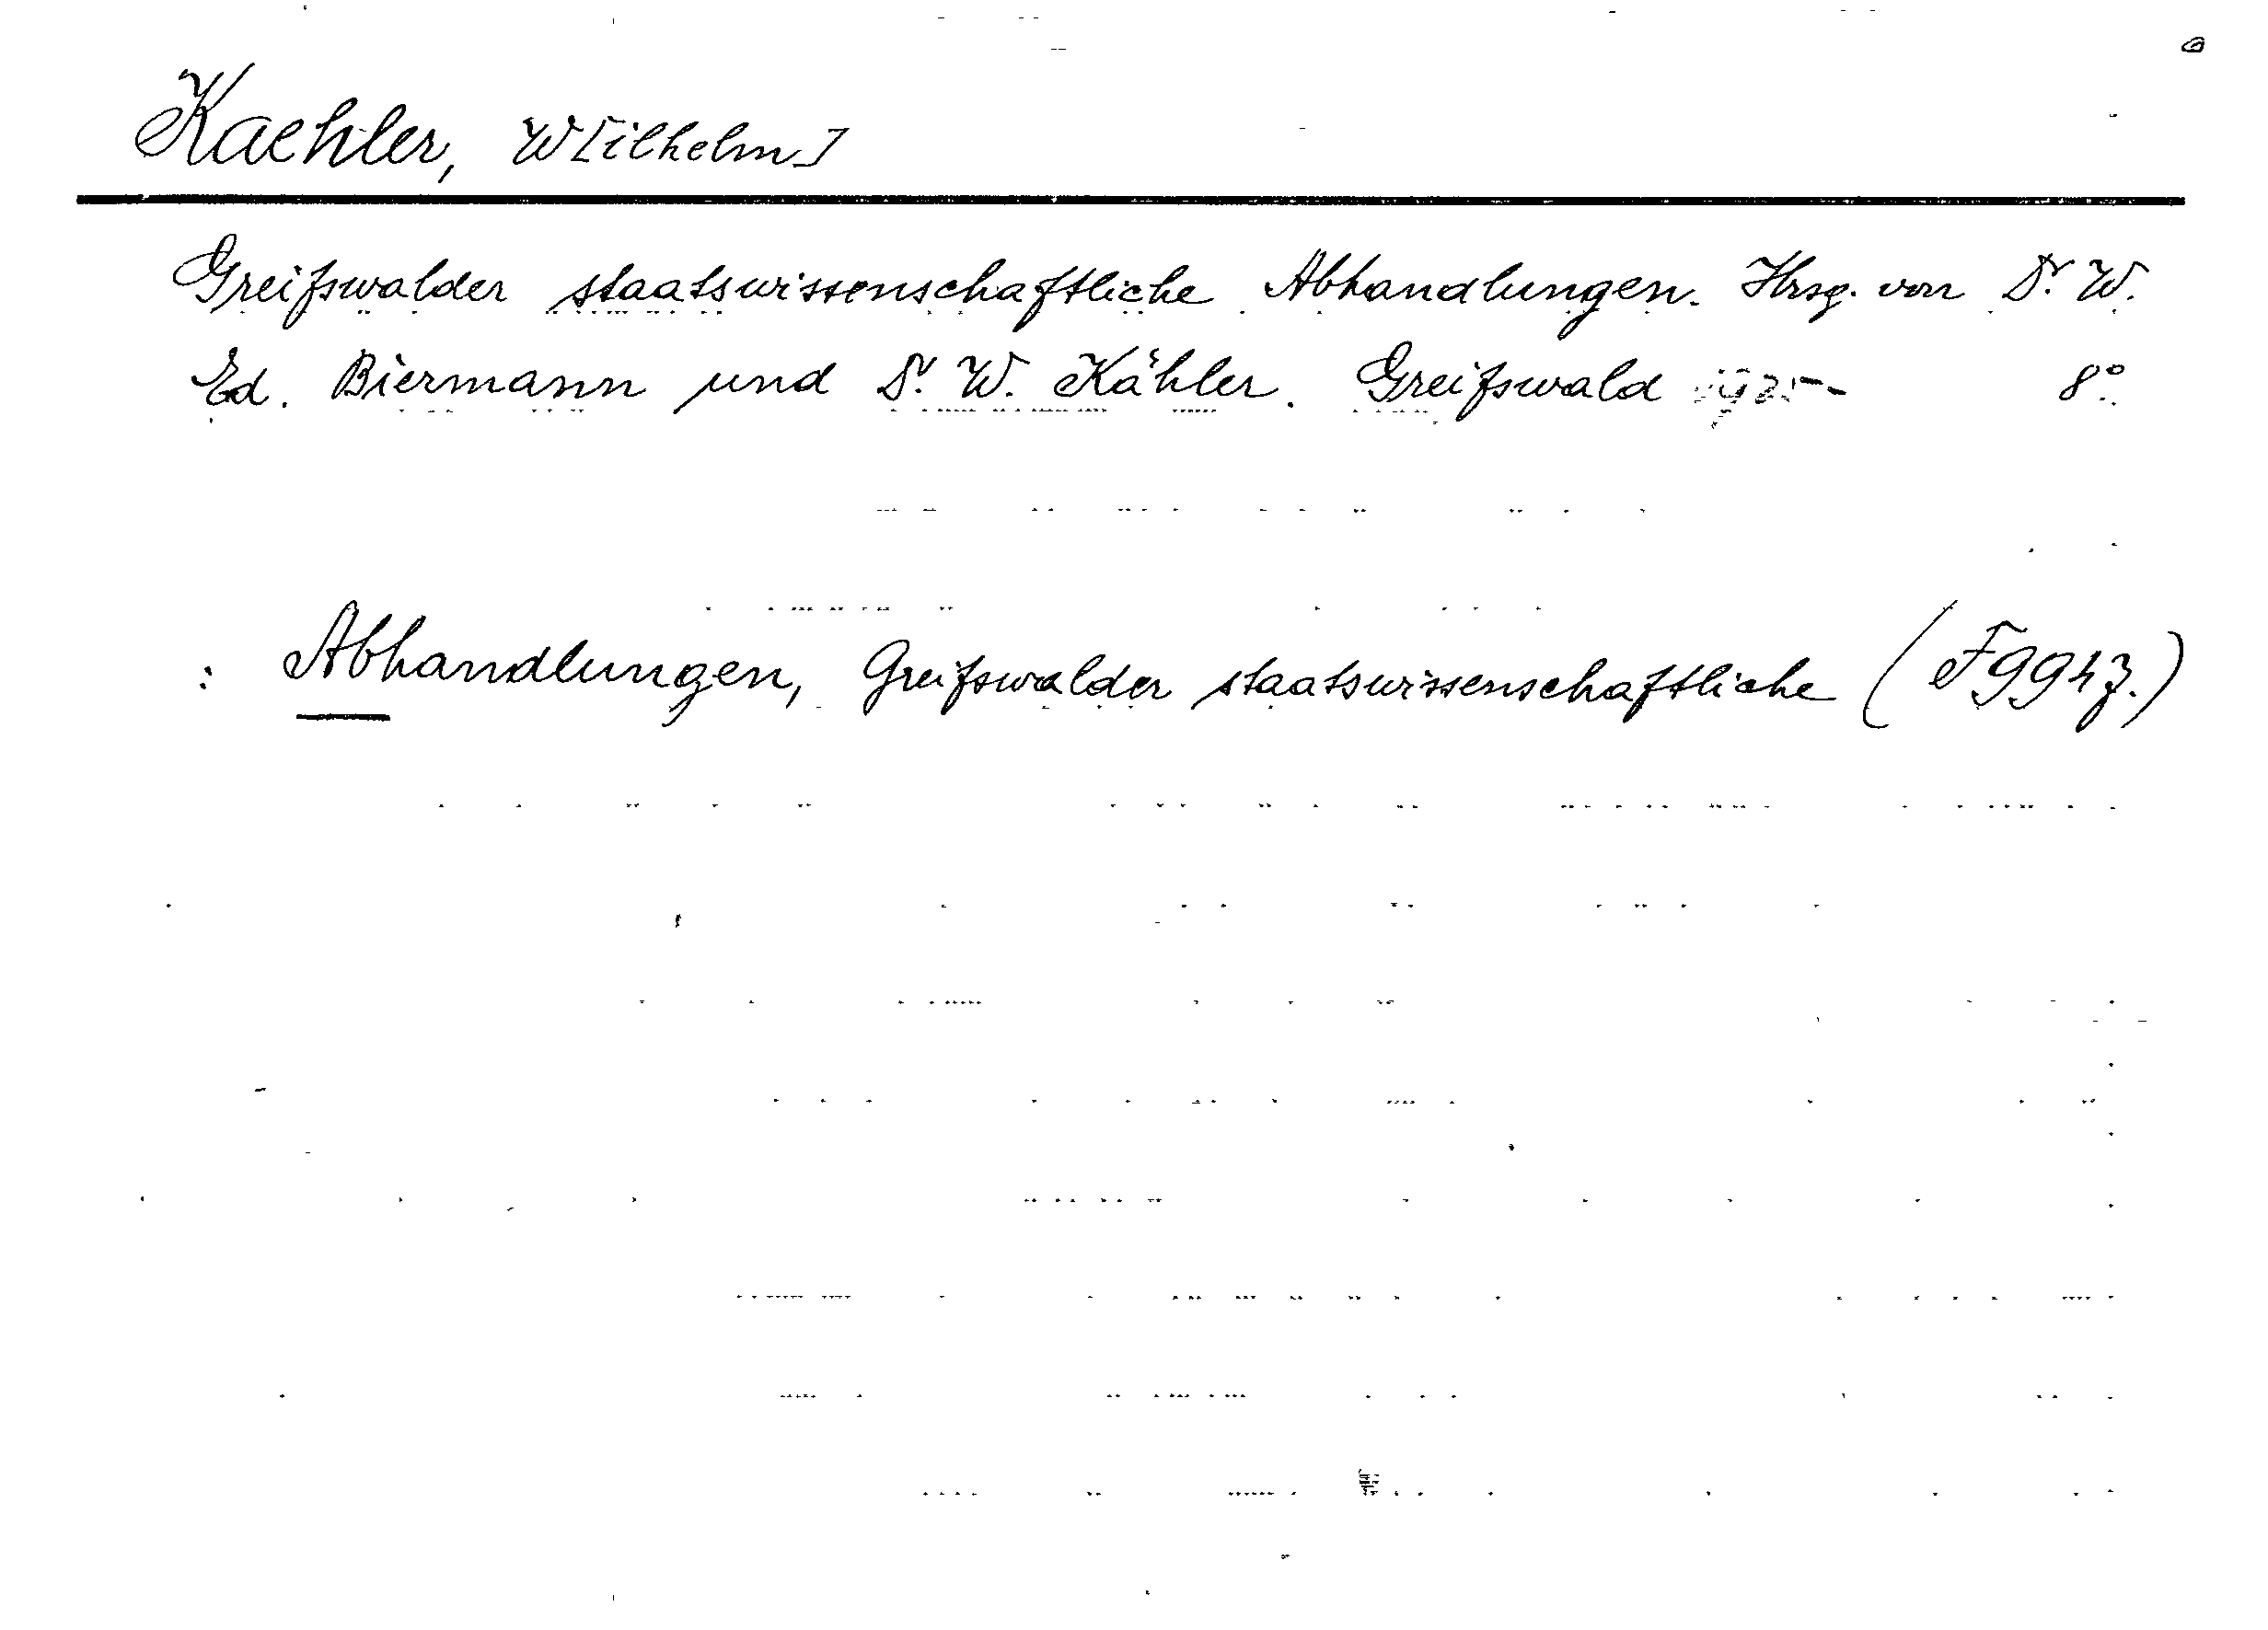 Kaehler, W[ilhelm]
Greifswalder staatswissenschaftliche Abhandlungen. Hrsg. von Dr. W.
Ed. Biermann und Dr. W. Kähler. Greifswald 1925- 8°
: Abhandlungen, Greifswalder staatswissenschaftliche